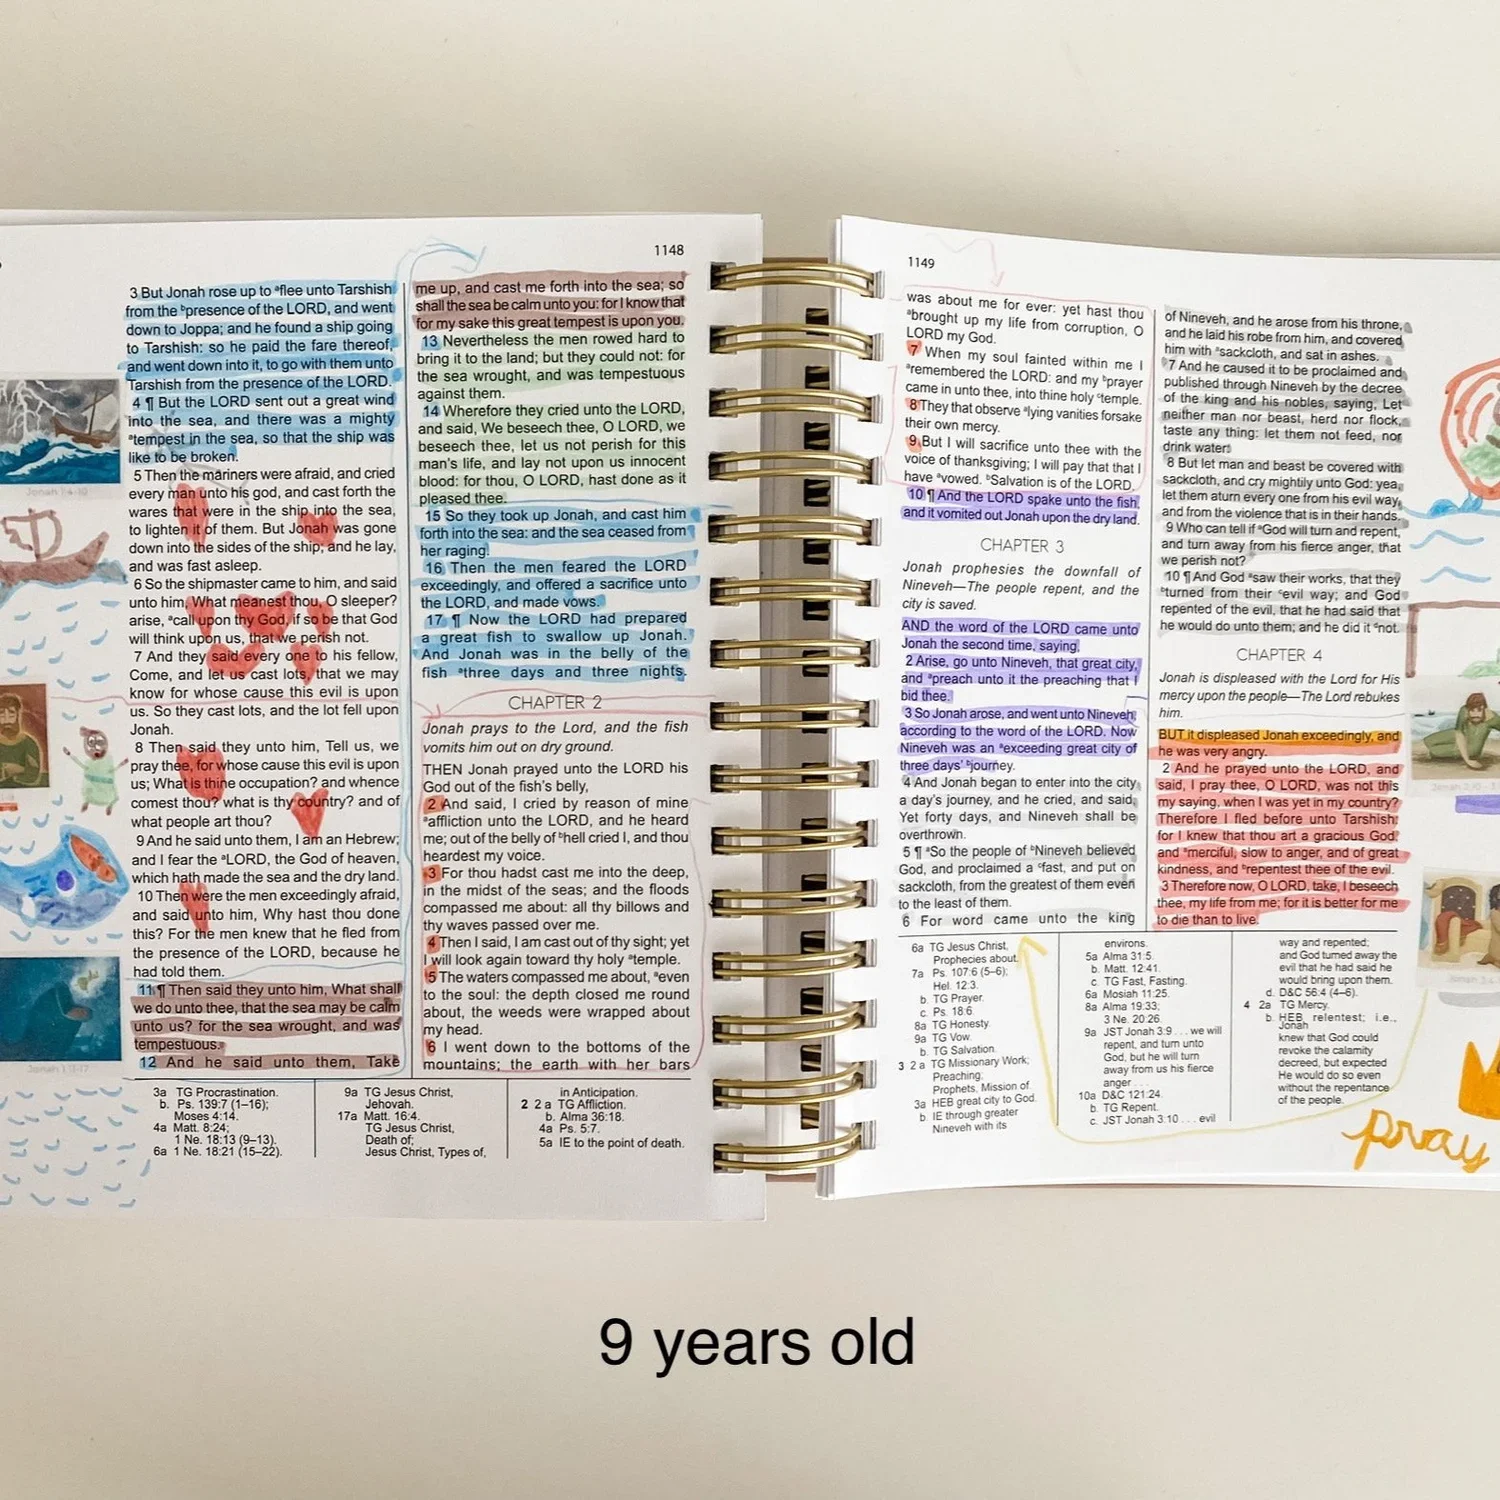 1148
3 But Jonah rose up to ᵃflee unto Tarshish
from the ᵇpresence of the LORD, and went
down to Joppa; and he found a ship going
to Tarshish: so he paid the fare thereof,
and went down into it, to go with them unto
Tarshish from the presence of the LORD.
4 ¶ But the LORD sent out a great wind
into the sea, and there was a mighty
ᵃtempest in the sea, so that the ship was
like to be broken.
5 Then the mariners were afraid, and cried
every man unto his god, and cast forth the
wares that were in the ship into the sea,
to lighten it of them. But Jonah was gone
down into the sides of the ship; and he lay,
and was fast asleep.
6 So the shipmaster came to him, and said
unto him, What meanest thou, O sleeper?
arise, ᵃcall upon thy God, if so be that God
will think upon us, that we perish not.
7 And they said every one to his fellow,
Come, and let us cast lots, that we may
know for whose cause this evil is upon
us. So they cast lots, and the lot fell upon
Jonah.
8 Then said they unto him, Tell us, we
pray thee, for whose cause this evil is upon
us; What is thine occupation? and whence
comest thou? what is thy country? and of
what people art thou?
9 And he said unto them, I am an Hebrew;
and I fear the ᵃLORD, the God of heaven,
which hath made the sea and the dry land.
10 Then were the men exceedingly afraid,
and said unto him, Why hast thou done
this? For the men knew that he fled from
the presence of the LORD, because he
had told them.
11 ¶ Then said they unto him, What shall
we do unto thee, that the sea may be calm
unto us? for the sea wrought, and was
tempestuous.
12 And he said unto them, Take
me up, and cast me forth into the sea; so
shall the sea be calm unto you: for I know that
for my sake this great tempest is upon you.
13 Nevertheless the men rowed hard to
bring it to the land; but they could not: for
the sea wrought, and was tempestuous
against them.
14 Wherefore they cried unto the LORD,
and said, We beseech thee, O LORD, we
beseech thee, let us not perish for this
man's life, and lay not upon us innocent
blood: for thou, O LORD, hast done as it
pleased thee.
15 So they took up Jonah, and cast him
forth into the sea: and the sea ceased from
her raging.
16 Then the men feared the LORD
exceedingly, and offered a sacrifice unto
the LORD, and made vows.
17 ¶ Now the LORD had prepared
a great fish to swallow up Jonah.
And Jonah was in the belly of the
fish ᵃthree days and three nights.
CHAPTER 2
Jonah prays to the Lord, and the fish
vomits him out on dry ground.
THEN Jonah prayed unto the LORD his
God out of the fish's belly,
2 And said, I cried by reason of mine
ᵃaffliction unto the LORD, and he heard
me; out of the belly of ᵇhell cried I, and thou
heardest my voice.
3 For thou hadst cast me into the deep,
in the midst of the seas; and the floods
compassed me about: all thy billows and
thy waves passed over me.
4 Then I said, I am cast out of thy sight; yet
I will look again toward thy holy ᵃtemple.
5 The waters compassed me about, ᵃeven
to the soul: the depth closed me round
about, the weeds were wrapped about
my head.
6 I went down to the bottoms of the
mountains; the earth with her bars
3a TG Procrastination.
b. Ps. 139:7 (1–16);
Moses 4:14.
4a Matt. 8:24;
1 Ne. 18:13 (9–13).
6a 1 Ne. 18:21 (15–22).
9a TG Jesus Christ,
Jehovah.
17a Matt. 16:4.
TG Jesus Christ,
Death of;
Jesus Christ, Types of,
in Anticipation.
2 2 a TG Affliction.
b. Alma 36:18.
4a Ps. 5:7.
5a IE to the point of death.
Jonah 1:4-10
Jonah 1:12-17
1149
was about me for ever: yet hast thou
ᵃbrought up my life from corruption, O
LORD my God.
7 When my soul fainted within me I
ᵃremembered the LORD: and my ᵇprayer
came in unto thee, into thine holy ᶜtemple.
8 They that observe ᵃlying vanities forsake
their own mercy.
9 But I will sacrifice unto thee with the
voice of thanksgiving; I will pay that that I
have ᵃvowed. ᵇSalvation is of the LORD.
10 ¶ And the LORD spake unto the fish,
and it vomited out Jonah upon the dry land.
CHAPTER 3
Jonah prophesies the downfall of
Nineveh—The people repent, and the
city is saved.
AND the word of the LORD came unto
Jonah the second time, saying,
2 Arise, go unto Nineveh, that great city,
and ᵃpreach unto it the preaching that I
bid thee.
3 So Jonah arose, and went unto Nineveh,
according to the word of the LORD. Now
Nineveh was an ᵃexceeding great city of
three days' ᵇjourney.
4 And Jonah began to enter into the city
a day's journey, and he cried, and said,
Yet forty days, and Nineveh shall be
overthrown.
5 ¶ ᵃSo the people of ᵇNineveh believed
God, and proclaimed a ᶜfast, and put on
sackcloth, from the greatest of them even
to the least of them.
6 For word came unto the king
of Nineveh, and he arose from his throne,
and he laid his robe from him, and covered
him with ᵃsackcloth, and sat in ashes.
7 And he caused it to be proclaimed and
published through Nineveh by the decree
of the king and his nobles, saying, Let
neither man nor beast, herd nor flock,
taste any thing: let them not feed, nor
drink water:
8 But let man and beast be covered with
sackcloth, and cry mightily unto God: yea,
let them aturn every one from his evil way,
and from the violence that is in their hands.
9 Who can tell if ᵃGod will turn and repent,
and turn away from his fierce anger, that
we perish not?
10 ¶ And God ᵃsaw their works, that they
ᵇturned from their ᶜevil way; and God
repented of the evil, that he had said that
he would do unto them; and he did it ᵈnot.
CHAPTER 4
Jonah is displeased with the Lord for His
mercy upon the people—The Lord rebukes
him.
BUT it displeased Jonah exceedingly, and
he was very angry.
2 And he prayed unto the LORD, and
said, I pray thee, O LORD, was not this
my saying, when I was yet in my country?
Therefore I fled before unto Tarshish:
for I knew that thou art a gracious God,
and ᵃmerciful, slow to anger, and of great
kindness, and ᵇrepentest thee of the evil.
3 Therefore now, O LORD, take, I beseech
thee, my life from me; for it is better for me
to die than to live.
6a TG Jesus Christ,
Prophecies about.
7a Ps. 107:6 (5–6);
Hel. 12:3.
b. TG Prayer.
c. Ps. 18:6.
8a TG Honesty.
9a TG Vow.
b. TG Salvation.
3 2 a TG Missionary Work;
Preaching.
Prophets, Mission of
3a HEB great city to God.
b IE through greater
Nineveh with its
environs.
5a Alma 31:5.
b. Matt. 12:41.
c. TG Fast, Fasting.
6a Mosiah 11:25.
8a Alma 19:33;
3 Ne. 20:26.
9a JST Jonah 3:9 . . . we will
repent, and turn unto
God, but he will turn
away from us his fierce
anger . . .
10a D&C 121:24.
b. TG Repent.
c. JST Jonah 3:10 . . . evil
way and repented;
and God turned away the
evil that he had said he
would bring upon them.
d. D&C 56:4 (4–6).
4 2a TG Mercy.
b. HEB relentest; i.e.,
Jonah
knew that God could
revoke the calamity
decreed, but expected
He would do so even
without the repentance
of the people.
pray
9 years old